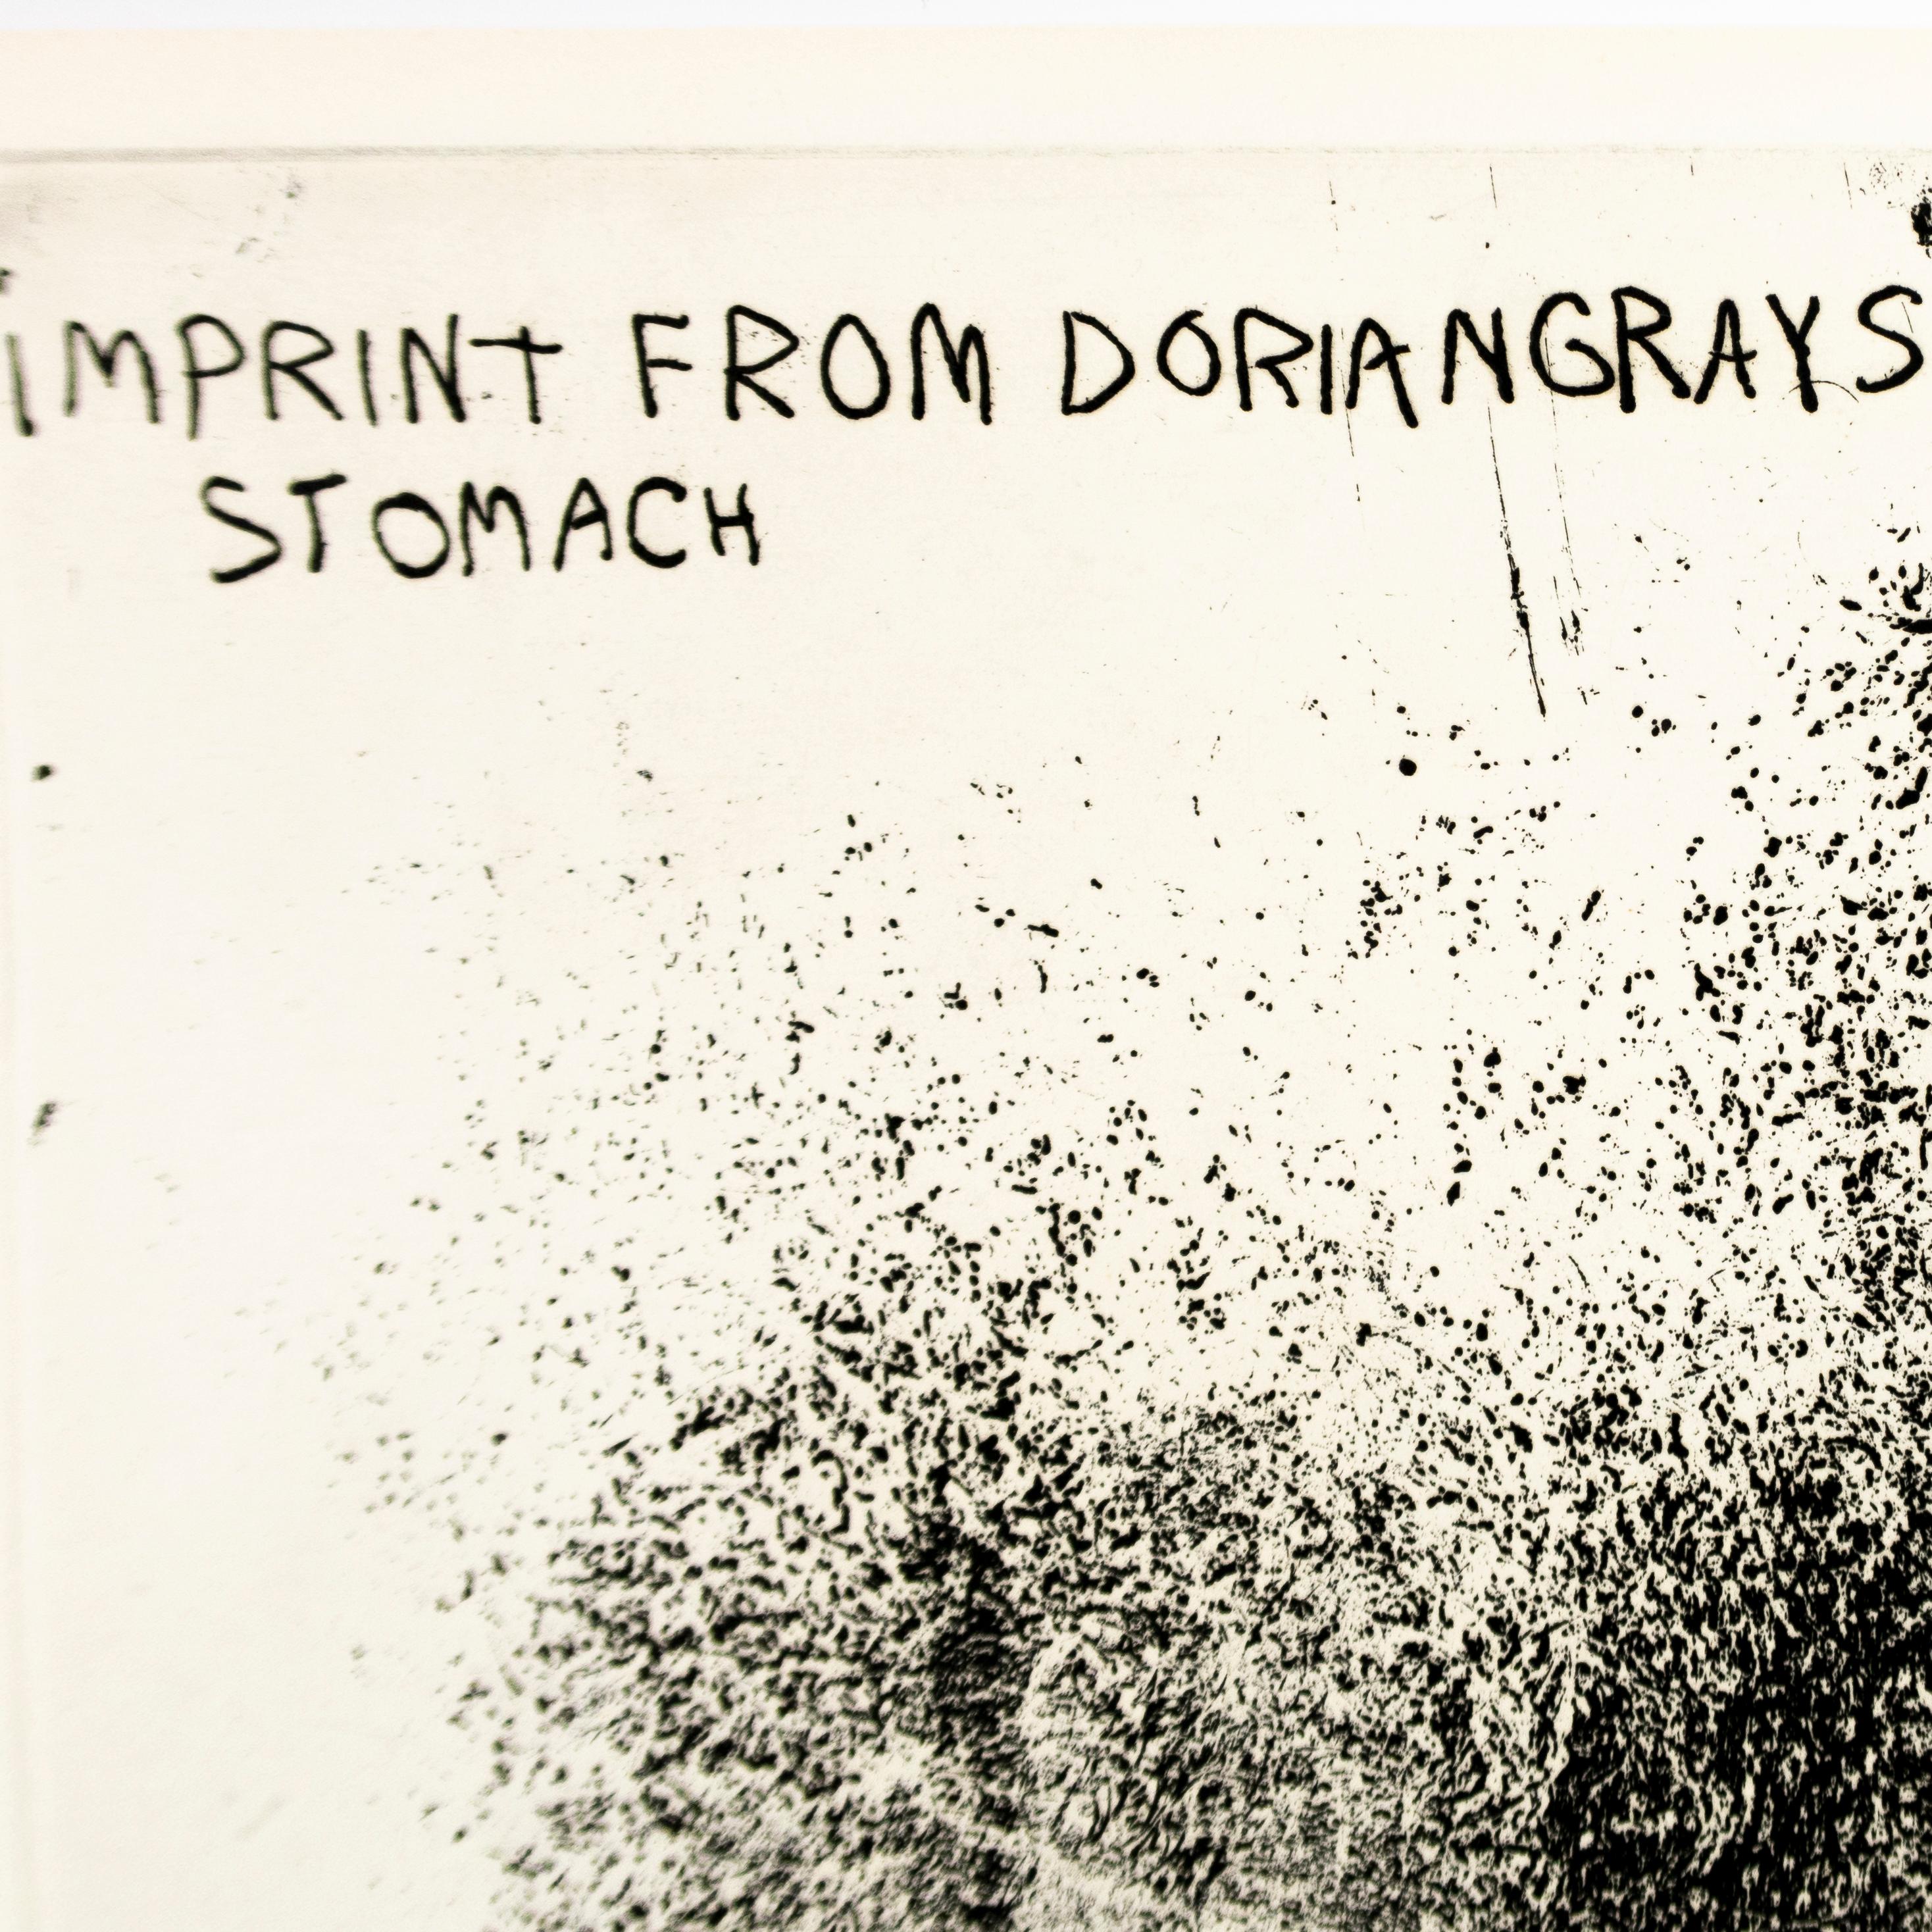 IMPRINT FROM DORIANGRAYS
STOMACH